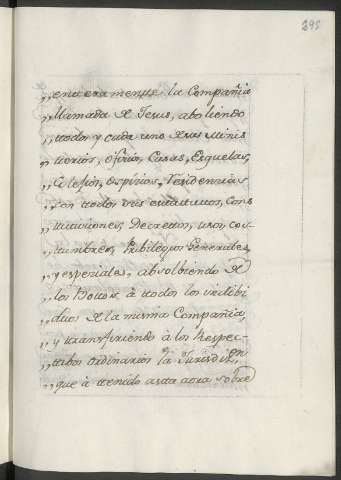 295
„ enteramente la Compañia
„ llamada de Jesus, aboliendo
„ todos y cada uno de sus Minis
„ terios, Oficios, Casas, Esquelas,
„ Colejios, ospicios, Residencias
„ con todos sus estatutos, cons
„ tituciones, Decretos, usos, cos-
„ tumbres, Pribilegios Generales,
„ y espeziales, absolbiendo de
„ los Botos, à todos los indibi
„ duos de la misma Compañia,
„ y transfiriendo à los Respec-
„ tibos ordinarios la Jurisdic.on
„ que à tenido asta aora sobre